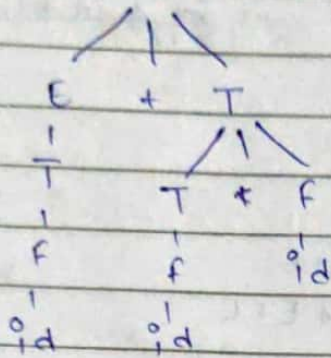 E + T
T T * F
F f id
id id